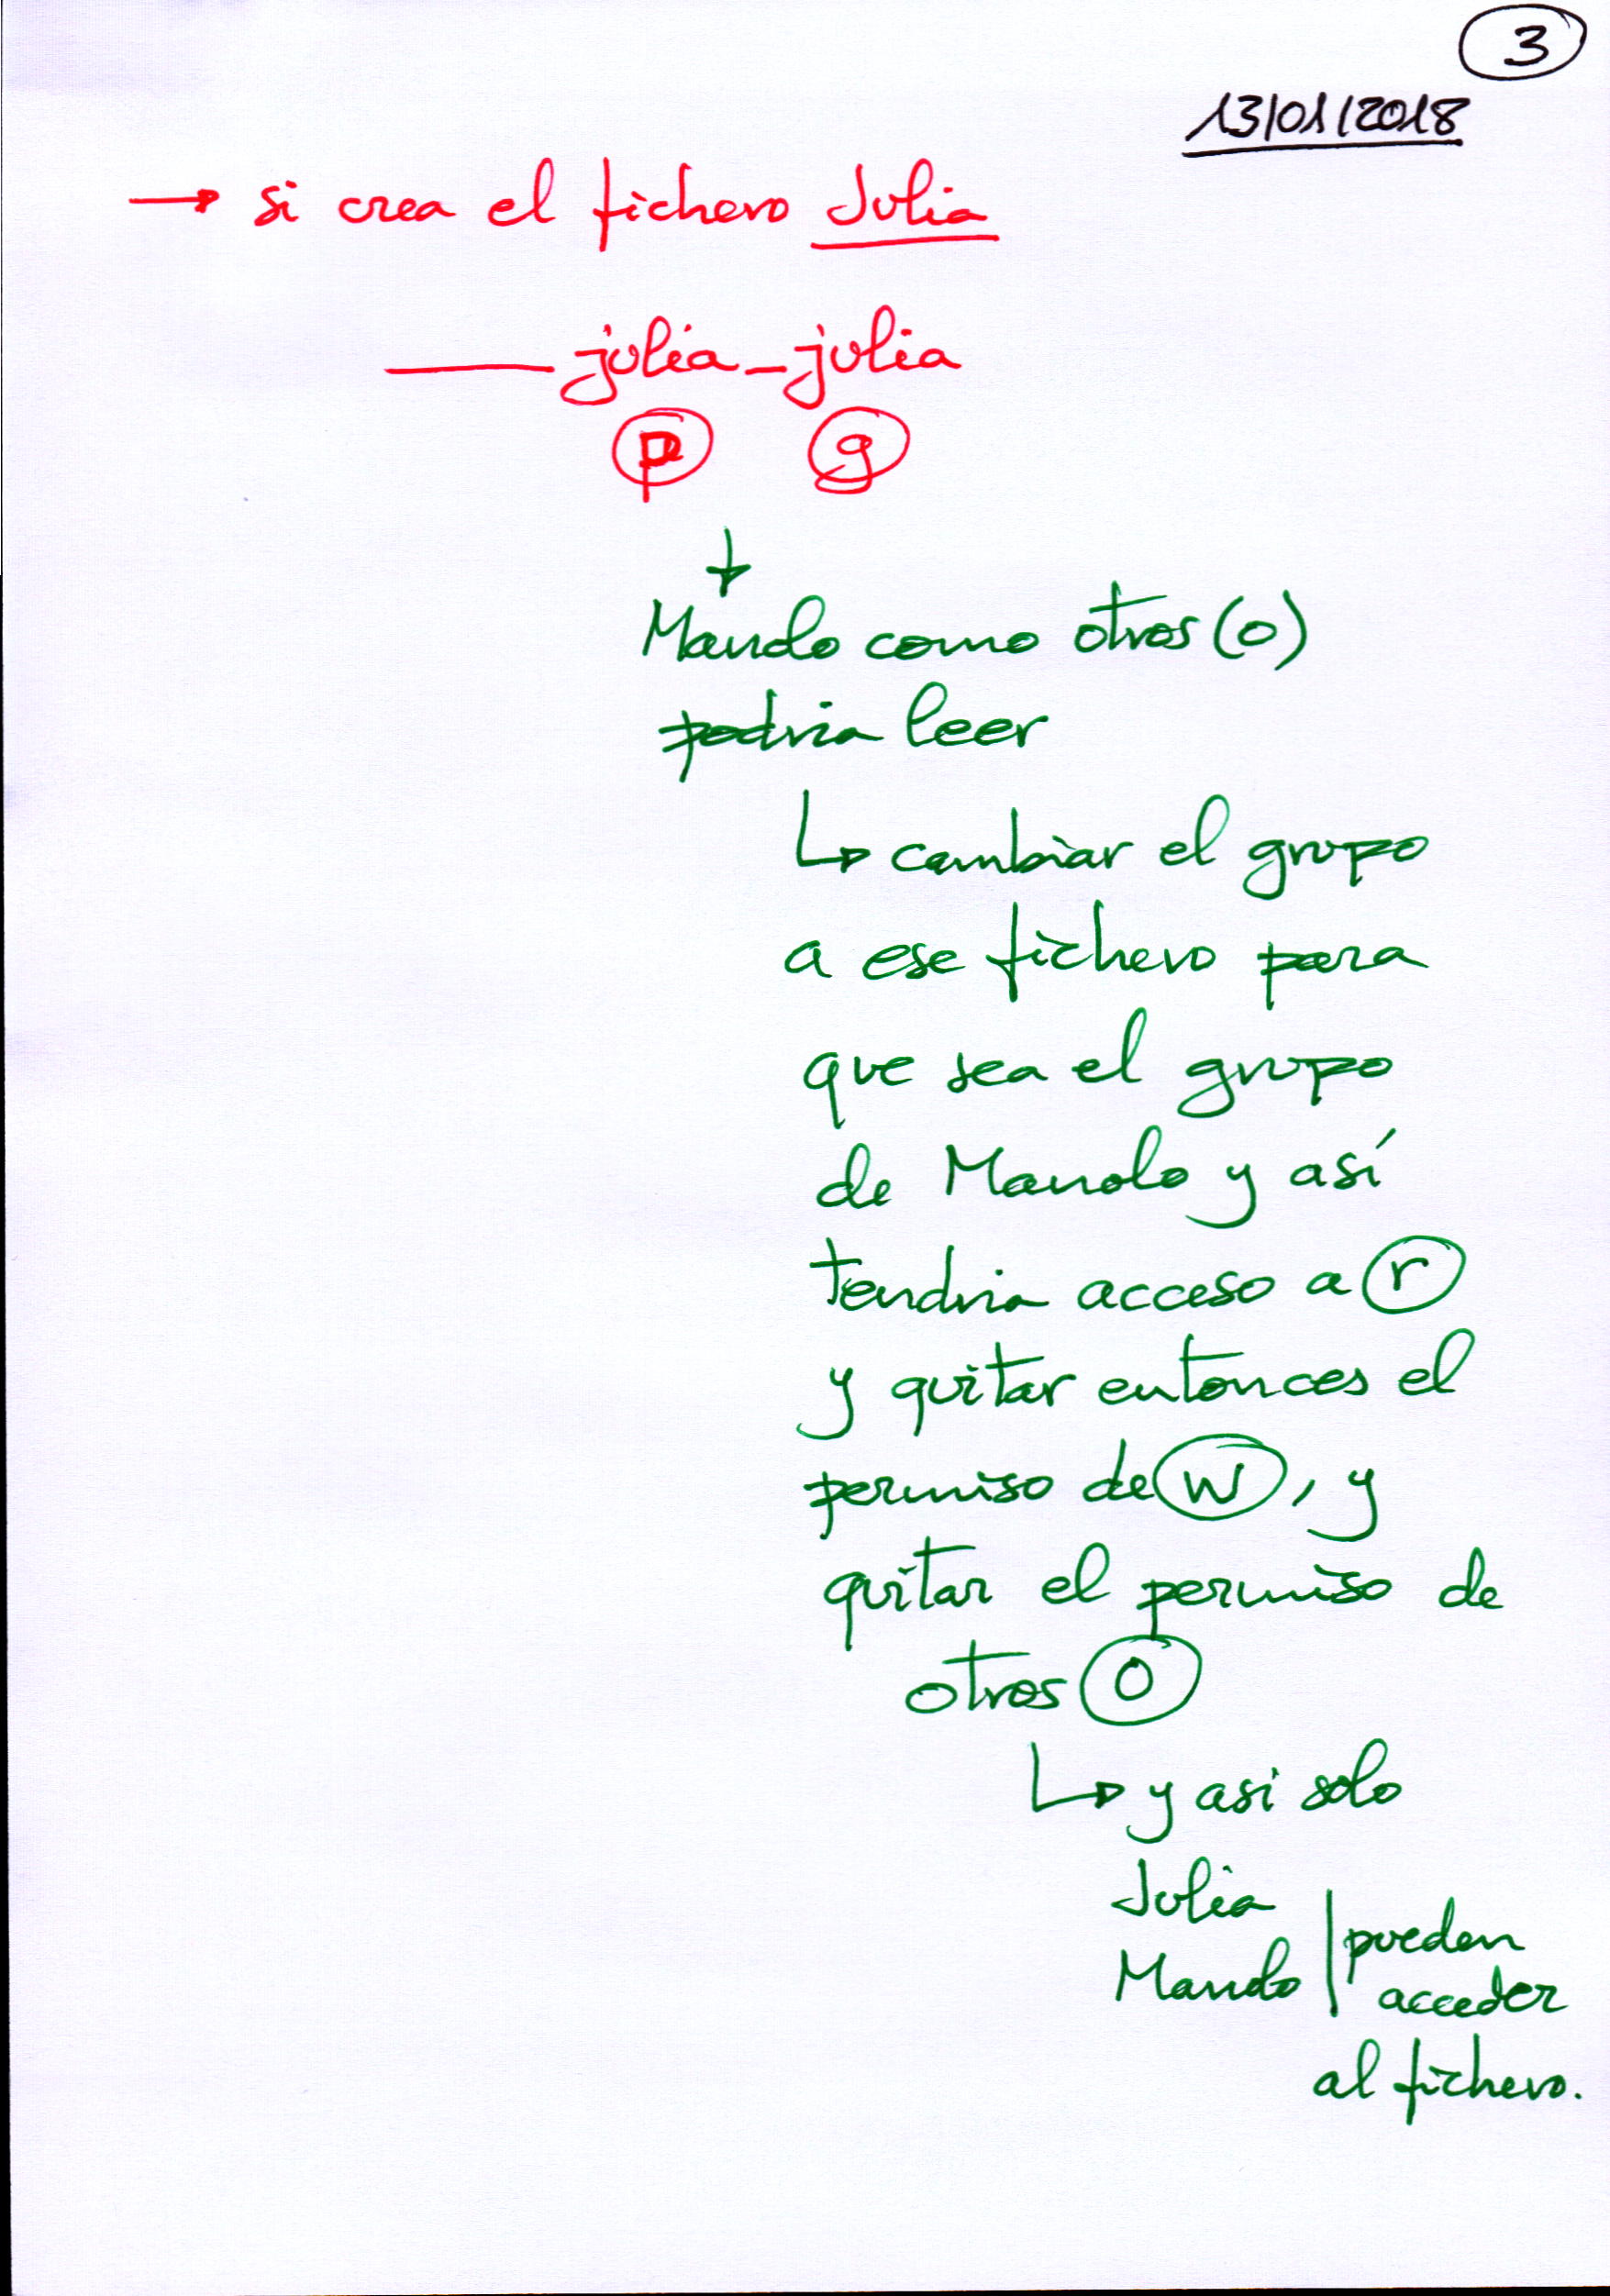 3
13/01/2018
→ si crea el fichero Julia
——— julia — julia
p g
↓
Manolo como otros (o)
podria leer
↳ cambiar el grupo
a ese fichero para
que sea el grupo
de Manolo y así
tendria acceso a r
y quitar entonces el
permiso de w, y
quitar el permiso de
otros o
↳ y asi solo
Julia
Manolo | pueden
acceder
al fichero.